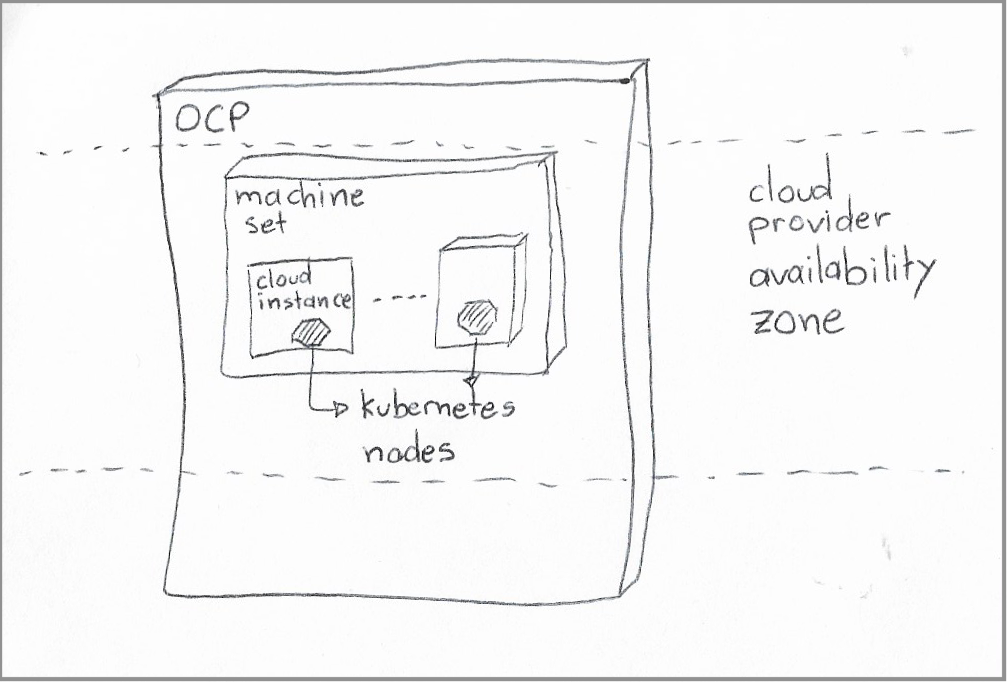 OCP
machine
set
cloud
instance
kubernetes
nodes
cloud
provider
availability
zone